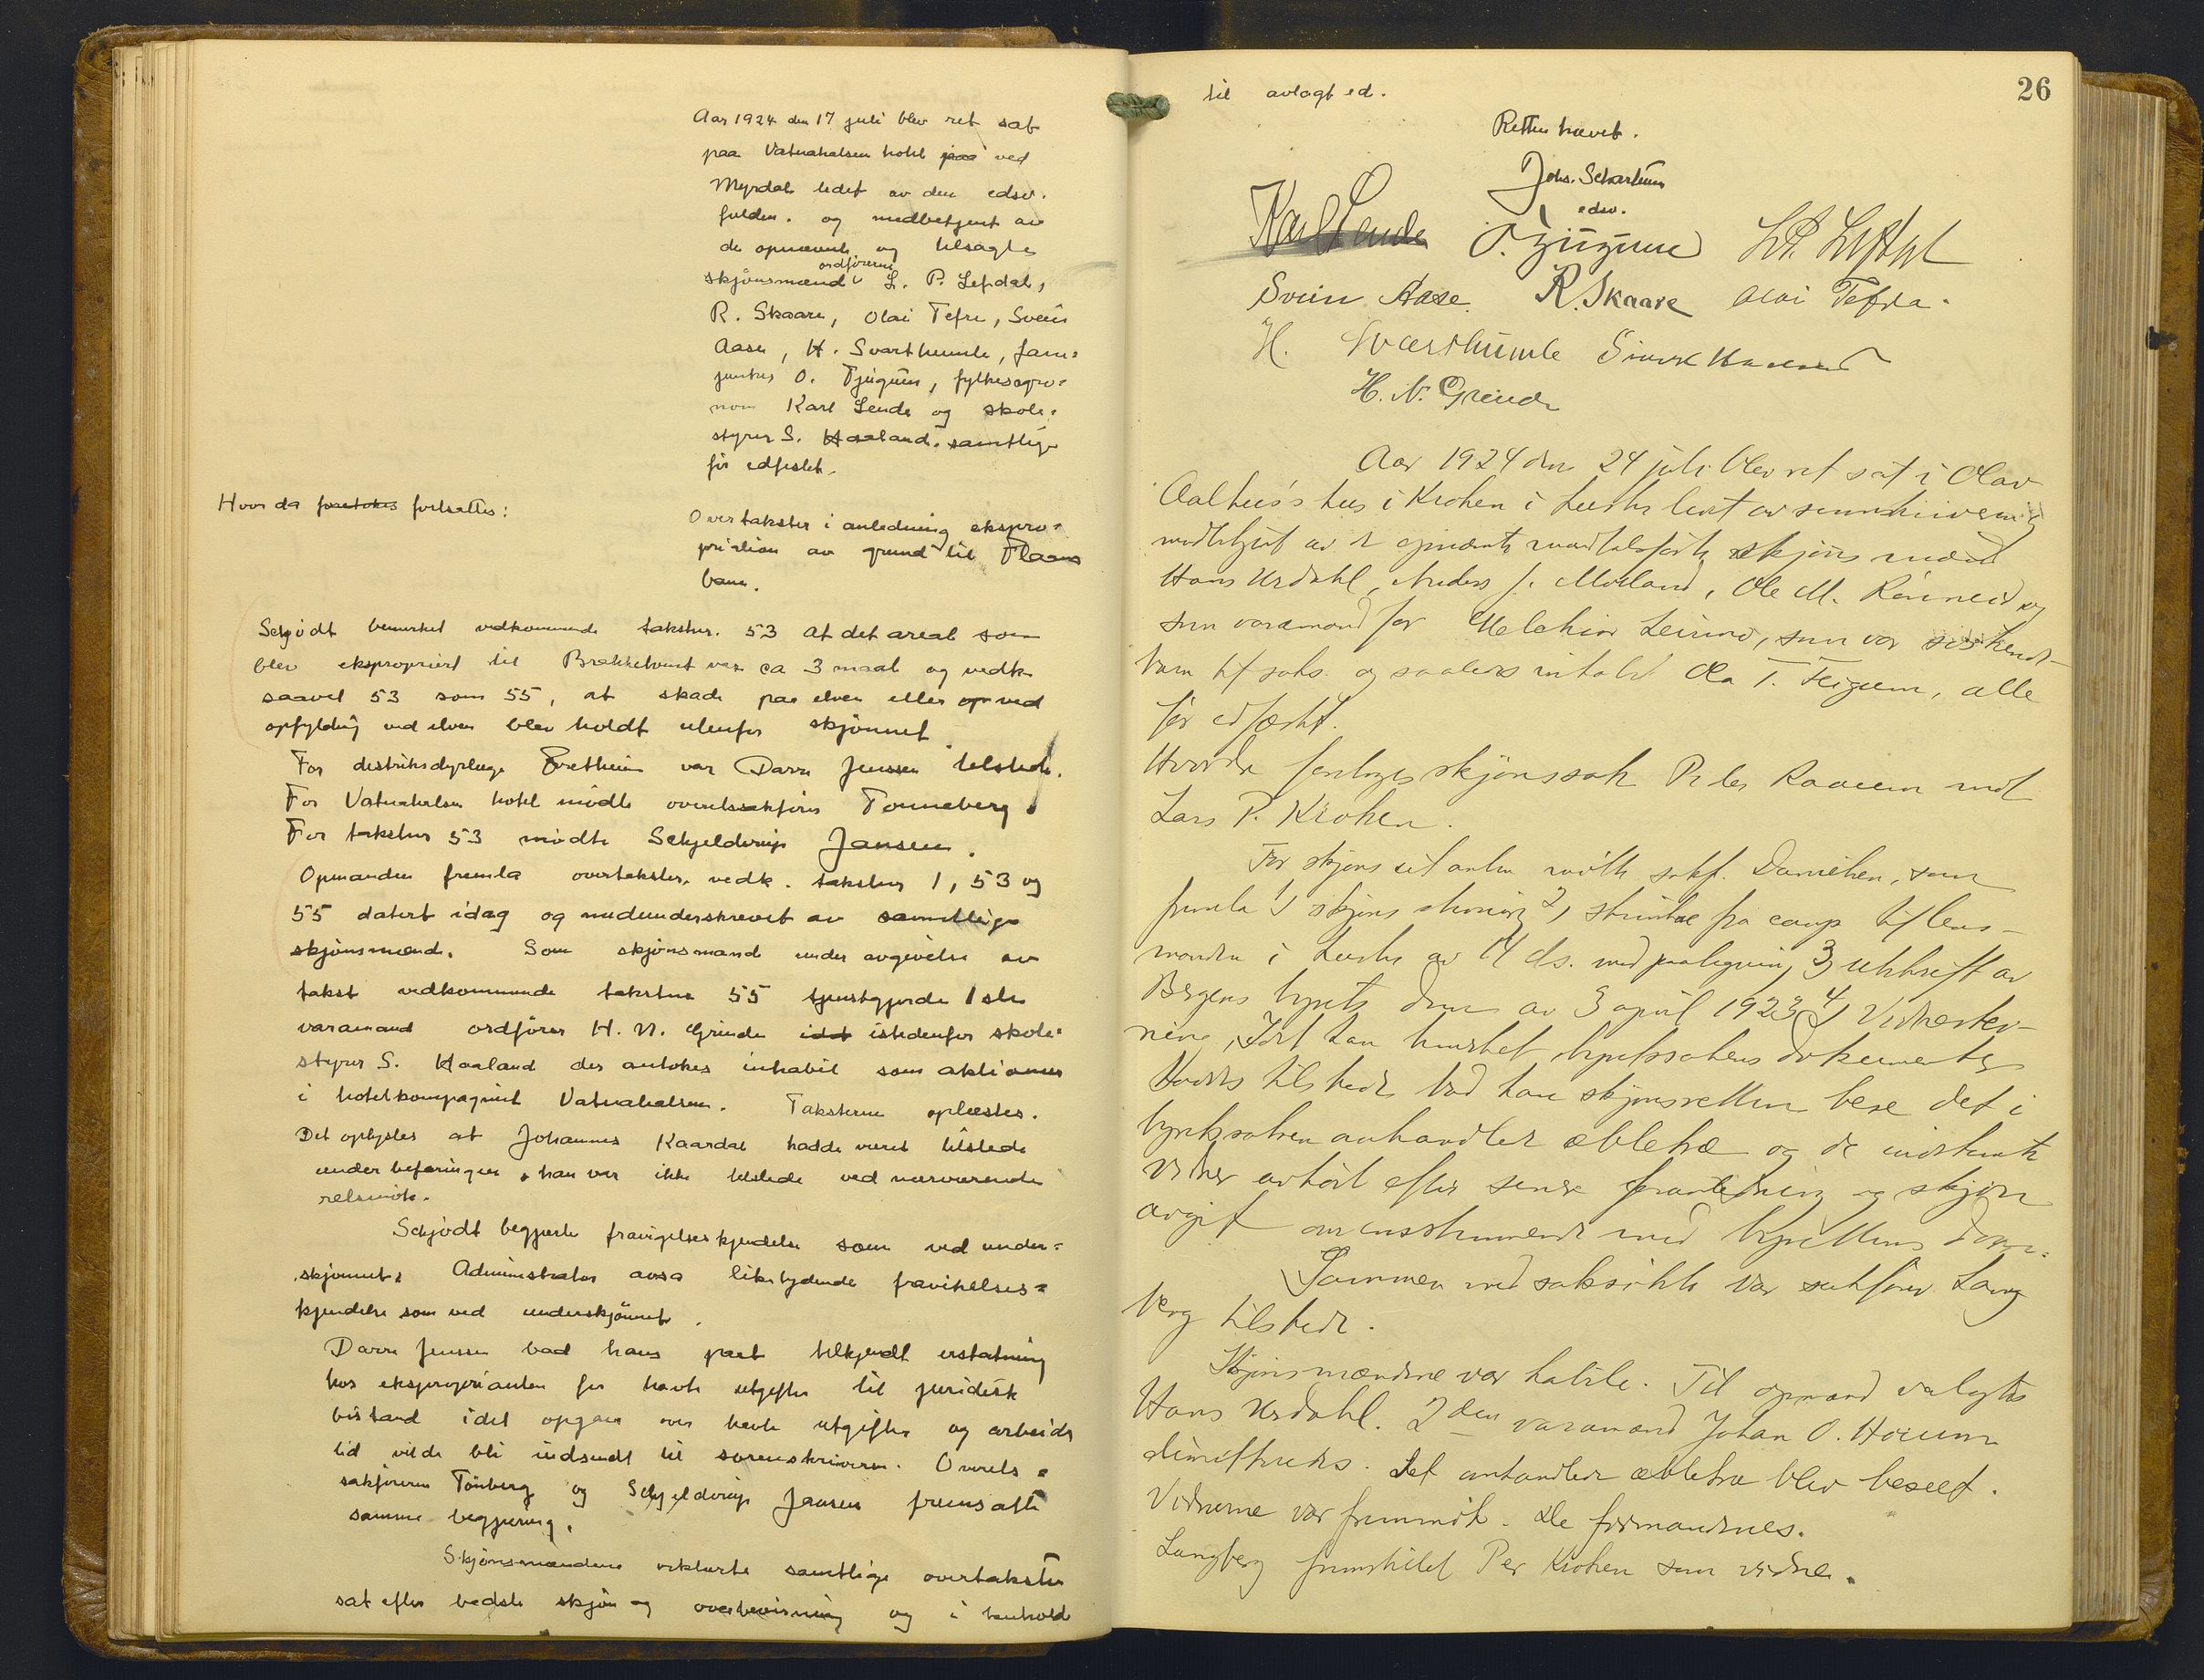 Aar 1924 den 17 juli blev ret sat
paa Vatnahalsen hotel paa ved
Myrdal ledet av den edsv.
fuldm. og medbetjent av
de opnævnte og tilsagte
ordførerne
skjønsmænd L. P. Lefdal,
R. Skaare, Olai Tefre, Svein
Aase, H. Svarthumle, jam-
junker O. Fjugum, fylkesagro-
nom Karl Lende og skole-
styrer S. Haaland. samtlige
før edfestet.
Hvor da foretokes fortsattes:
Overtakster i anledning ekspro-
priation av grund til Flaams
banen.
Schjødt bemerket vedkommende takstnr. 53 at det areal som
blev ekspropriert til Brækketomt var ca 3 maal og vedk.
saavel 53 som 55, at skade paa elven eller op ved
opfylding ved elven blev holdt utenfor skjønnet.
For distriktsdyrlæge Bretheim var Darre Jenssen tilstede.
For Vatnahalsen hotel mødte overretssakfører Tonneberg.
For takstnr 53 mødte Schjelderup Jansen.
Opmanden fremla overtakster vedk. takstnr 1, 53 og
55 datert idag og medunderskrevet av samtlige
skjønsmænd. Som skjønsmand under avgivelse av
takst vedkommende takstnr 55 tjenstgjorde 1ste
varamand ordfører H. N. Grinde istedenfor skole-
styrer S. Haaland der ansøkes inhabil som aktionær
i hotelkompagniet Vatnahalsen. Taksterne oplæstes.
Det oplystes at Johannes Kaardal hadde været tilstede
under befaringen, han var ikke tilstede ved nærværende
retsmøte.
Schjødt begjærte fravigelseskjendelse som ved under-
skjønnet. Administrator avsa likelydende fravikelses-
kjendelse som ved underskjønnet.
Darre Jenssen bad hans part tilkjendt erstatning
hos eksproprianten for havte utgifter til juridisk
bistand idet opgave over havte utgifter og arbeids
tid vilde bli indsendt til sorenskriveren. Overrets-
sakførerne Tönberg og Schjelderup Jansen fremsatte
samme begjæring.
Skjønsmændene erklærte samtlige overtakster
sat efter bedste skjøn og overbevisning og i henhold
26
til avlagt ed.
Retten hævet.
Johs. Schartum
edsv.
Karl Lende O. Fjugum L. P. Lefdal
Svein Aase. R. Skaare Olai Tefra.
H. Svarthumle Haaland
H. N. Grinde
Aar 1924 den 24 juli blev ret sat i Olav
Aalhus's hus i Kroken i Luster ledet av sorenskriveren og
medbetjent av de opnævnte mandtalsførte skjøns mænd
Hans Urdahl, Anders J. Moland, Ole M. Rönneid og
som varamand for Melchior Leirmo, som var
og saaledes intalt Ola T. Feigum, alle
før edfæstet.
Hvorda foretoges skjønssak Peter Raaum mot
Lars P. Kroken.
For skjøns citanten mötte sakf. Danielsen, som
fremla 1) skjöns stevning 2) skrivelse fra camp til lens-
manden i Luster av 14 ds. med paategning, 3) utskrift av
Bergens byrets dom av 3 april 1923 4) Vidnestev-
ning, idet han ønsket byretssakens dokumenter
tilstede bad han skjønsretten bese det i
byretssaken omhandlede æbletræ og de indstevnte
vidner avhört efter senere foranledning og skjön
avgit overensstemmende med byrettens dom.
Sammen med saksökte var sakförer Lang
berg tilstede.
Skjönsmændene var habile. Til opmand valgtes
Hans Urdahl. 2den varamand Johan O. Houum
dimitteredes. Det omhandlede æbletræ blev beseet.
Vidnerne var fremmøtt. De formanedes.
Langberg fremstillet Per Kroken som vidne.